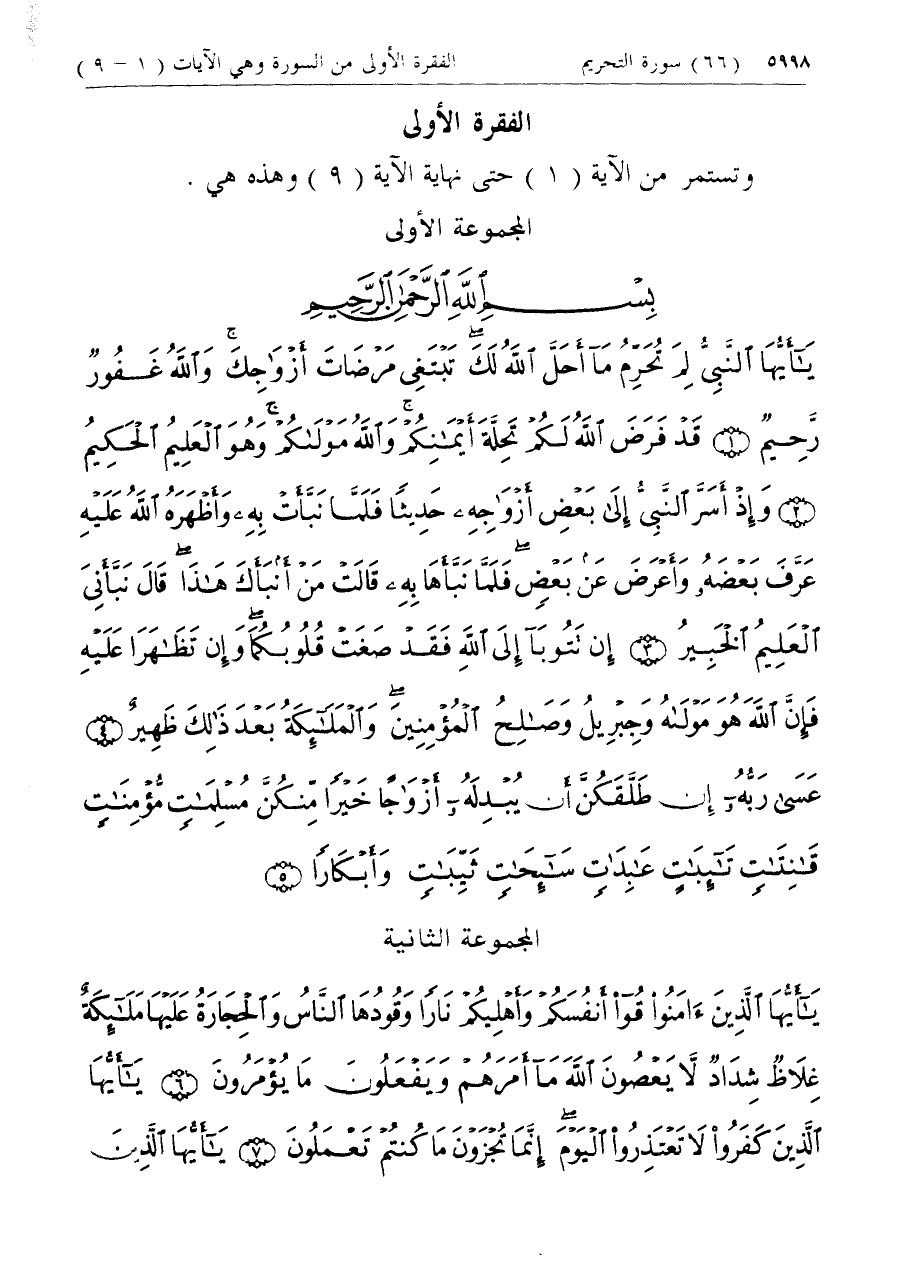 ٥٩٩٨ (٦٦) سورة التحريم الفقرة الأولى من السورة وهي الآيات ( ١ - ٩ )
الفقرة الأولى
وتستمر من الآية ( ١ ) حتى نهاية الآية ( ٩ ) وهذه هي .
المجموعة الأولى
بِسْمِ ٱللَّهِ ٱلرَّحْمَٰنِ ٱلرَّحِيمِ
يَٰٓأَيُّهَا ٱلنَّبِىُّ لِمَ تُحَرِّمُ مَآ أَحَلَّ ٱللَّهُ لَكَ ۖ تَبْتَغِى مَرْضَاتَ أَزْوَٰجِكَ ۚ وَٱللَّهُ غَفُورٌ
رَّحِيمٌ ١ قَدْ فَرَضَ ٱللَّهُ لَكُمْ تَحِلَّةَ أَيْمَٰنِكُمْ ۚ وَٱللَّهُ مَوْلَىٰكُمْ ۚ وَهُوَ ٱلْعَلِيمُ ٱلْحَكِيمُ
٢ وَإِذْ أَسَرَّ ٱلنَّبِىُّ إِلَىٰ بَعْضِ أَزْوَٰجِهِۦ حَدِيثًا فَلَمَّا نَبَّأَتْ بِهِۦ وَأَظْهَرَهُ ٱللَّهُ عَلَيْهِ
عَرَّفَ بَعْضَهُۥ وَأَعْرَضَ عَنۢ بَعْضٍ ۖ فَلَمَّا نَبَّأَهَا بِهِۦ قَالَتْ مَنْ أَنۢبَأَكَ هَٰذَا ۖ قَالَ نَبَّأَنِىَ
ٱلْعَلِيمُ ٱلْخَبِيرُ ٣ إِن تَتُوبَآ إِلَى ٱللَّهِ فَقَدْ صَغَتْ قُلُوبُكُمَا ۖ وَإِن تَظَٰهَرَا عَلَيْهِ
فَإِنَّ ٱللَّهَ هُوَ مَوْلَىٰهُ وَجِبْرِيلُ وَصَٰلِحُ ٱلْمُؤْمِنِينَ ۖ وَٱلْمَلَٰٓئِكَةُ بَعْدَ ذَٰلِكَ ظَهِيرٌ ٤
عَسَىٰ رَبُّهُۥٓ إِن طَلَّقَكُنَّ أَن يُبْدِلَهُۥٓ أَزْوَٰجًا خَيْرًا مِّنكُنَّ مُسْلِمَٰتٍ مُّؤْمِنَٰتٍ
قَٰنِتَٰتٍ تَٰٓئِبَٰتٍ عَٰبِدَٰتٍ سَٰٓئِحَٰتٍ ثَيِّبَٰتٍ وَأَبْكَارًا ٥
المجموعة الثانية
يَٰٓأَيُّهَا ٱلَّذِينَ ءَامَنُوا۟ قُوٓا۟ أَنفُسَكُمْ وَأَهْلِيكُمْ نَارًا وَقُودُهَا ٱلنَّاسُ وَٱلْحِجَارَةُ عَلَيْهَا مَلَٰٓئِكَةٌ
غِلَاظٌ شِدَادٌ لَّا يَعْصُونَ ٱللَّهَ مَآ أَمَرَهُمْ وَيَفْعَلُونَ مَا يُؤْمَرُونَ ٦ يَٰٓأَيُّهَا
ٱلَّذِينَ كَفَرُوا۟ لَا تَعْتَذِرُوا۟ ٱلْيَوْمَ ۖ إِنَّمَا تُجْزَوْنَ مَا كُنتُمْ تَعْمَلُونَ ٧ يَٰٓأَيُّهَا ٱلَّذِينَ